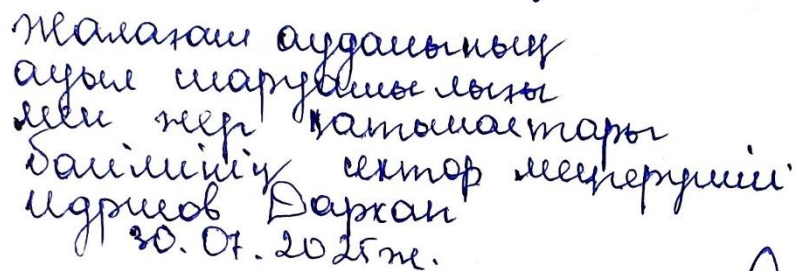 Жалағаш ауданының
ауыл шаруашылығы
мен жер қатынастары
бөлімінің сектор меңгерушісі
Идрисов Дархан
30.07.2025ж.